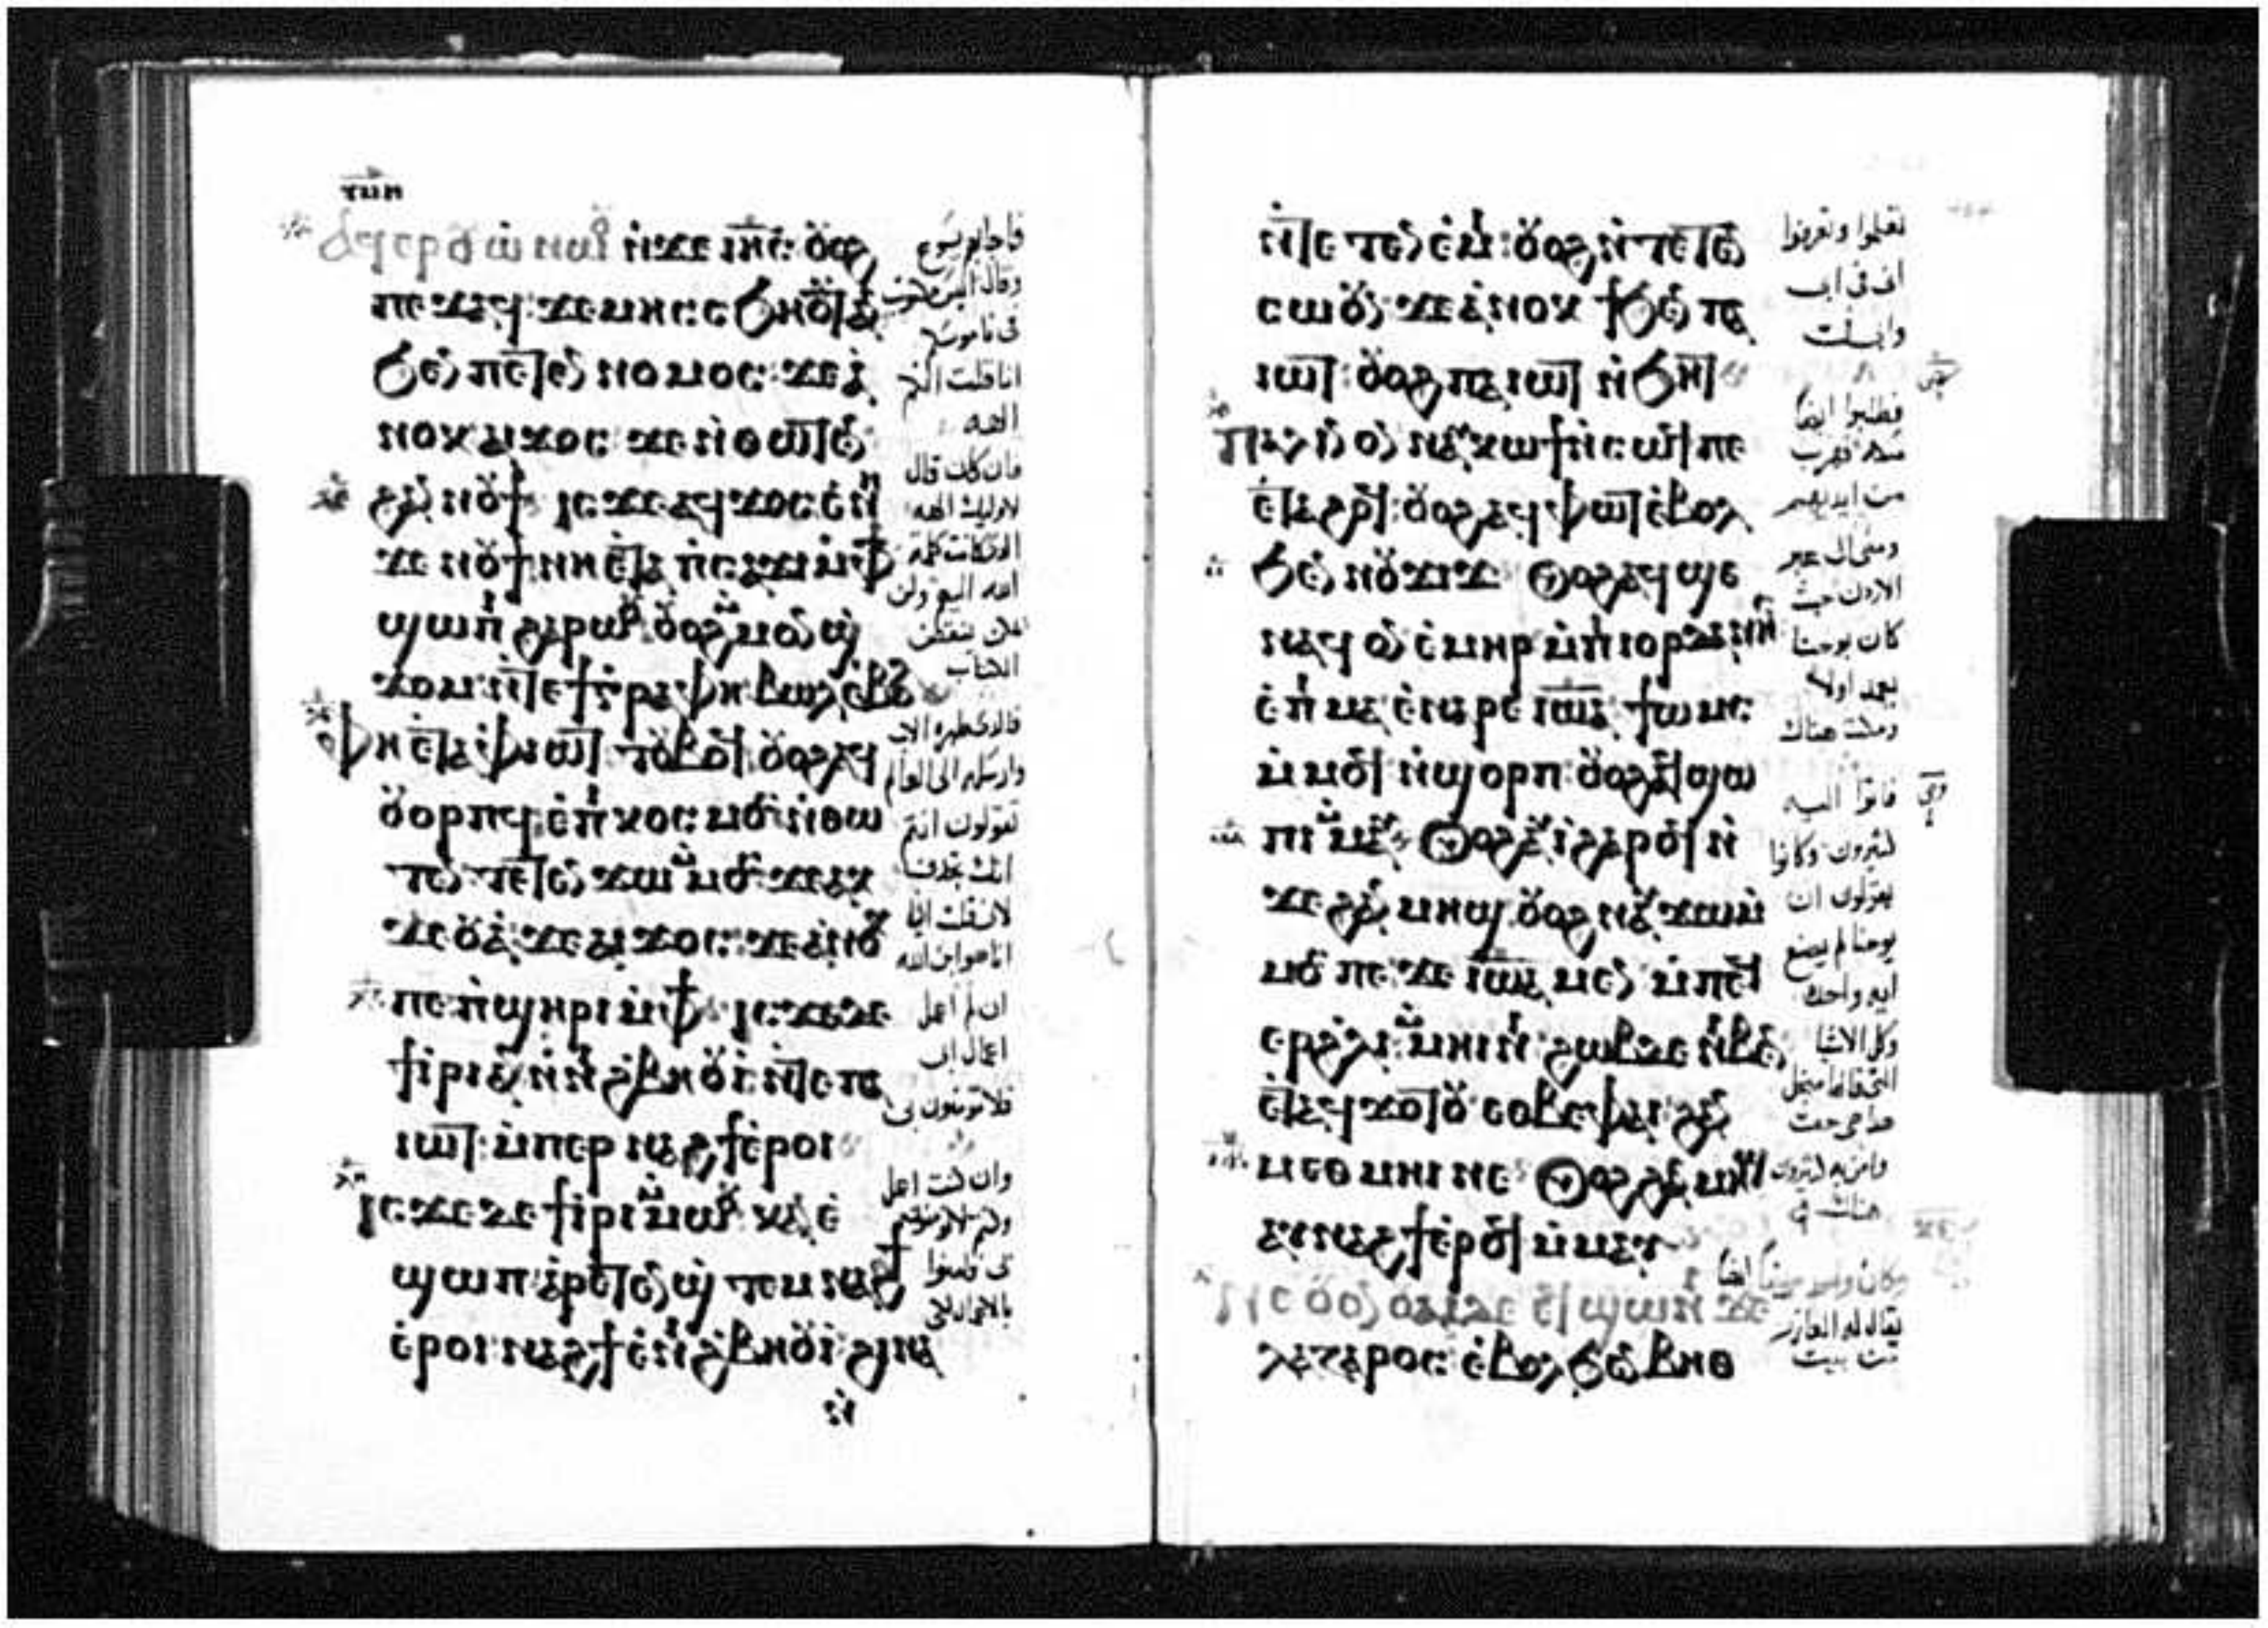 ⲁϥⲉⲣⲟⲩⲱ ⲛⲱⲟⲩ ⲛϫⲉ ⲓⲏⲥ ⲟⲩⲟϩ
ⲡⲉϫⲁϥ ϫⲉ ⲙⲏ ⲥⲥϧⲏⲟⲩⲧ ⲁⲛ
ϧⲉⲛ ⲡⲉⲧⲉⲛⲛⲟⲙⲟⲥ ϫⲉ ⲁ
ⲛⲟⲕ ⲁⲓϫⲟⲥ ϫⲉ ⲛⲑⲱⲧⲉⲛ
ϩⲁⲛⲛⲟⲩϯ ⲓⲥϫⲉ ⲁϥϫⲟⲥ ⲉⲛⲏ
ϫⲉ ⲛⲟⲩϯ ⲛⲏ ⲉⲧⲁ ⲡⲥⲁϫⲓ ⲙⲫϯ
ϣⲱⲡⲓ ϩⲁⲣⲱⲟⲩ ⲟⲩⲟϩ ⲙⲙⲟⲛ ϣ
ϫⲟⲙ ⲛⲧⲉ ϯⲅⲣⲁⲫⲏ ⲃⲱⲗ ⲉⲃⲟⲗ
ⲫⲏ ⲉⲧⲁ ⲫⲓⲱⲧ ⲧⲟⲩⲃⲟϥ ⲟⲩⲟϩ ⲁϥ
ⲟⲩⲟⲣⲡϥ ⲉⲡⲓⲕⲟⲥⲙⲟⲥ ⲛⲑⲱ
ⲧⲉⲛ ⲧⲉⲧⲉⲛϫⲱ ⲙⲙⲟⲥ ϫⲉ ⲁⲕ
ϫⲉⲟⲩⲁ ϫⲉ ⲁⲓϫⲟⲥ ϫⲉ ⲁⲛⲟⲕ
ⲡⲉ ⲡϣⲏⲣⲓ ⲙⲫϯ ⲓⲥϫⲉ ⲇⲉ
ϯⲓⲣⲓ ⲁⲛ ⲛⲛⲓϩⲃⲏⲟⲩⲓ ⲛⲧⲉ ⲡⲁ
ⲓⲱⲧ ⲙⲡⲉⲣⲛⲁϩϯ ⲉⲣⲟⲓ
ⲓⲥϫⲉ ⲇⲉ ϯⲓⲣⲓ ⲙⲙⲱⲟⲩ ⲕⲁⲛ ⲉ
ϣⲱⲡ ⲁⲣⲉⲧⲉⲛϣⲧⲉⲙⲛⲁϩϯ
ⲉⲣⲟⲓ ⲛⲁϩϯ ⲉⲛⲓϩⲃⲏⲟⲩⲓ ϩⲓⲛⲁ
فاجابهم يسوع
وقال اليس مكتوب
في ناموسكم
انا قلت انكم
الهه
فان كان قال
لاوليك الهه
الذي كانت كلمة
الله اليهم ولن
يمكن ينتقض
الكتاب
فالذي طهره الاب
وارسله الى العالم
تقولون انتم
انك تجدف
لاني قلت اني
انا هو ابن الله
ان لم اعمل
اعمال ابي
فلا تومنون بي
وان كنت اعمل
بي فامنوا
بالاعمال
ⲛⲧⲉⲧⲉⲛⲉⲙⲓ ⲟⲩⲟϩ ⲛⲧⲉⲧⲉⲛ
ⲥⲱⲟⲩⲛ ϫⲉ ⲁⲛⲟⲕ ϯϧⲉⲛ ⲡⲁ
ⲓⲱⲧ ⲟⲩⲟϩ ⲡⲁⲓⲱⲧ ⲛϧⲏⲧ
ⲡⲁⲗⲓⲛ ⲟⲛ ⲛⲁⲩⲕⲱϯ ⲛⲥⲱϥ ⲡⲉ
ⲉⲧⲁϩⲟϥ ⲟⲩⲟϩ ⲁϥⲫⲱⲧ ⲉⲃⲟⲗ
ϧⲉⲛ ⲛⲟⲩϫⲓϫ ⲟⲩⲟϩ ⲁϥϣⲉ
ⲛⲁϥ ⲟⲛ ⲉⲙⲏⲣ ⲙⲡⲓⲓⲟⲣⲇⲁⲛⲏⲥ
ⲉⲡⲓⲙⲁ ⲉⲛⲁⲣⲉ ⲓⲱⲁ ϯⲱⲙⲥ
ⲙⲙⲟϥ ⲛϣⲟⲣⲡ ⲟⲩⲟϩ ⲁϥϣⲱ
ⲡⲓ ⲙⲙⲁⲩ ⲟⲩⲟϩ ⲁⲩⲓ ϩⲁⲣⲟϥ ⲛ
ϫⲉ ϩⲁⲛⲙⲏϣ ⲟⲩⲟϩ ⲛⲁⲩϫⲱ ⲙ
ⲙⲟⲥ ⲡⲉ ϫⲉ ⲓⲱⲁ ⲙⲉⲛ ⲙⲡⲉϥ
ⲉⲣ ϩⲗⲓ ⲙⲙⲏⲓⲛⲓ ϩⲱⲃ ⲇⲉ ⲛⲓⲃⲉⲛ
ⲉⲧⲁϥϫⲟⲧⲟⲩ ⲉⲟⲃⲉ ⲫⲁⲓ ϩⲁⲛ
ⲙⲉⲑⲙⲏⲓ ⲛⲉ ⲟⲩⲟϩ ϩⲁⲛⲙⲏϣ
ⲁⲩⲛⲁϩϯ ⲉⲣⲟϥ ⲙⲙⲁⲩ
ⲛⲉ ⲟⲩⲟⲛ ⲟⲩⲁⲓ ⲇⲉ ⲉϥϣⲱⲛⲓ ϫⲉ
ⲗⲁⲍⲁⲣⲟⲥ ⲉⲃⲟⲗ ϧⲉⲛ ⲃⲏⲑ
تعلموا وتعرفوا
اني في ابي
فطلبوا ايضا
مسكه فخرج
من ايديهم
ومضى الى عبر
الاردن حيث
كان يوحنا
يعمد اولا
ومكث هناك
فاتوا اليه
كثيرون وكانوا
يقولون ان
يوحنا لم يصنع
ايه واحدة
وكل الاشيا
التي قالها من اجل
هذا هي حق
وامن به كثيرون
هناك
يقال له العازر
من بيت